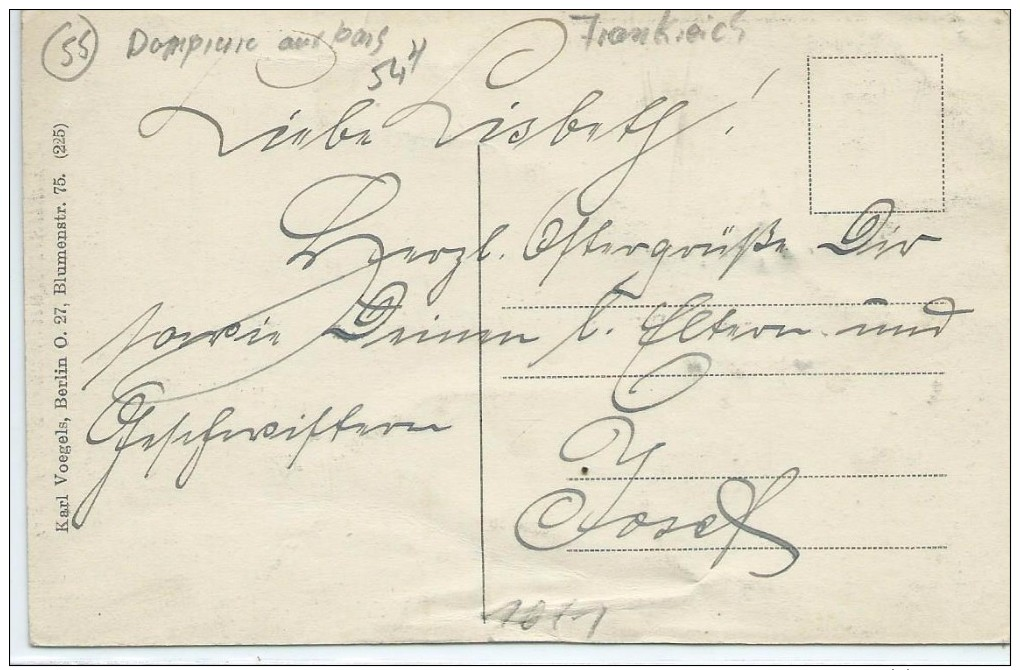 55 Dompierre aux bois Frankreich
54
Liebe Lisbeth!
Herzl. Ostergrüße Dir
sowie Deinen l. Eltern und
Geschwistern
Josef
Karl Voegels, Berlin O. 27, Blumenstr. 75. (225)